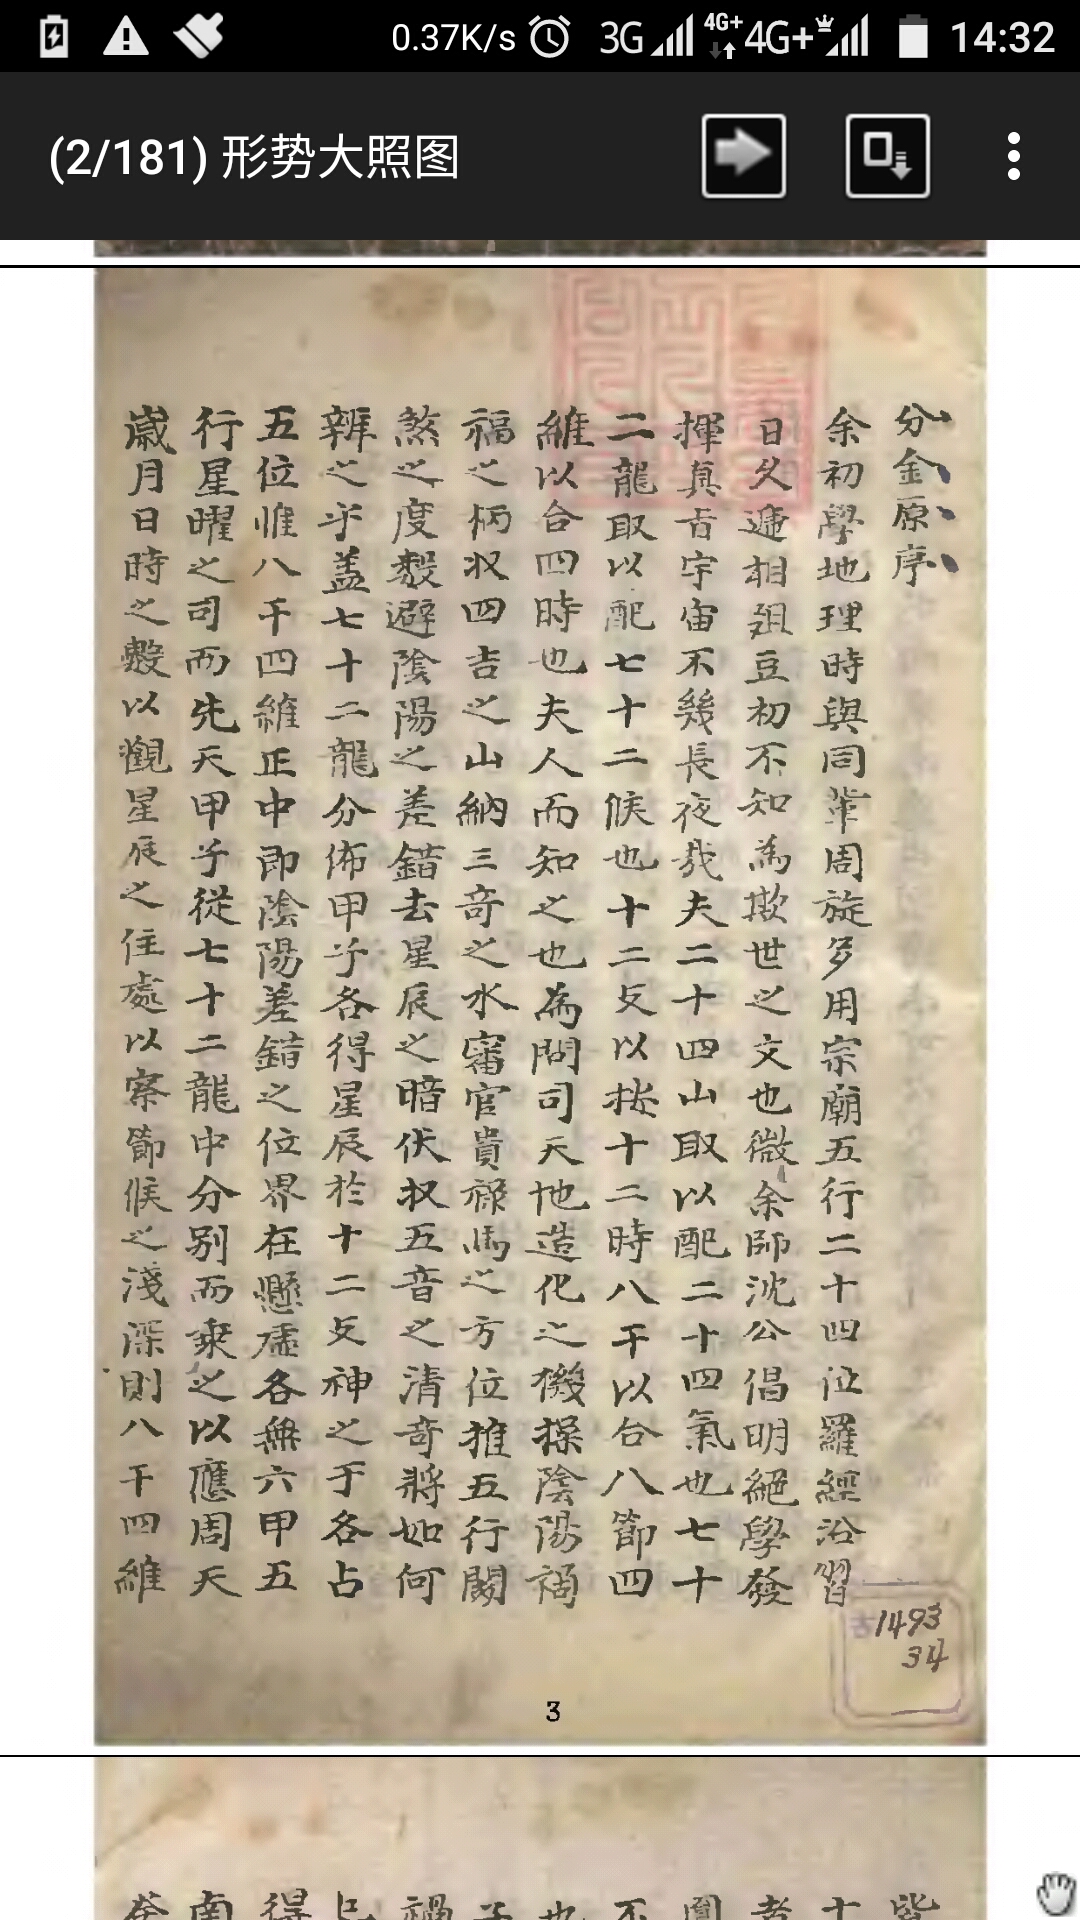 0.37K/s 3G 4G+ 4G+ 14:32
(2/181) 形势大照图
分金原序
余初學地理時與同軰周旋多用宗廟五行二十四位羅經沿習
日久遞相俎豆初不知為欺世之文也微余師沈公倡明絕學發
揮真旨宇宙不幾長夜㦲夫二十四山取以配二十四氣也七十
二龍取以配七十二候也十二支以按十二時八干以合八節四
維以合四時也夫人而知之也為問司天地造化之機操陰陽禍
福之柄収四吉之山納三奇之水審官貴祿馬之方位推五行闗
煞之度數避陰陽之差錯去星辰之暗伏収五音之清奇將如何
辨之乎盖七十二龍分佈甲子各得星辰於十二支神之于各占
五位惟八干四維正中即陰陽差錯之位界在懸虛各無六甲五
行星曜之司而先天甲子從七十二龍中分别而乘之以應周天
歲月日時之數以觀星辰之住處以察節候之淺深則八干四維
古1493
34
3